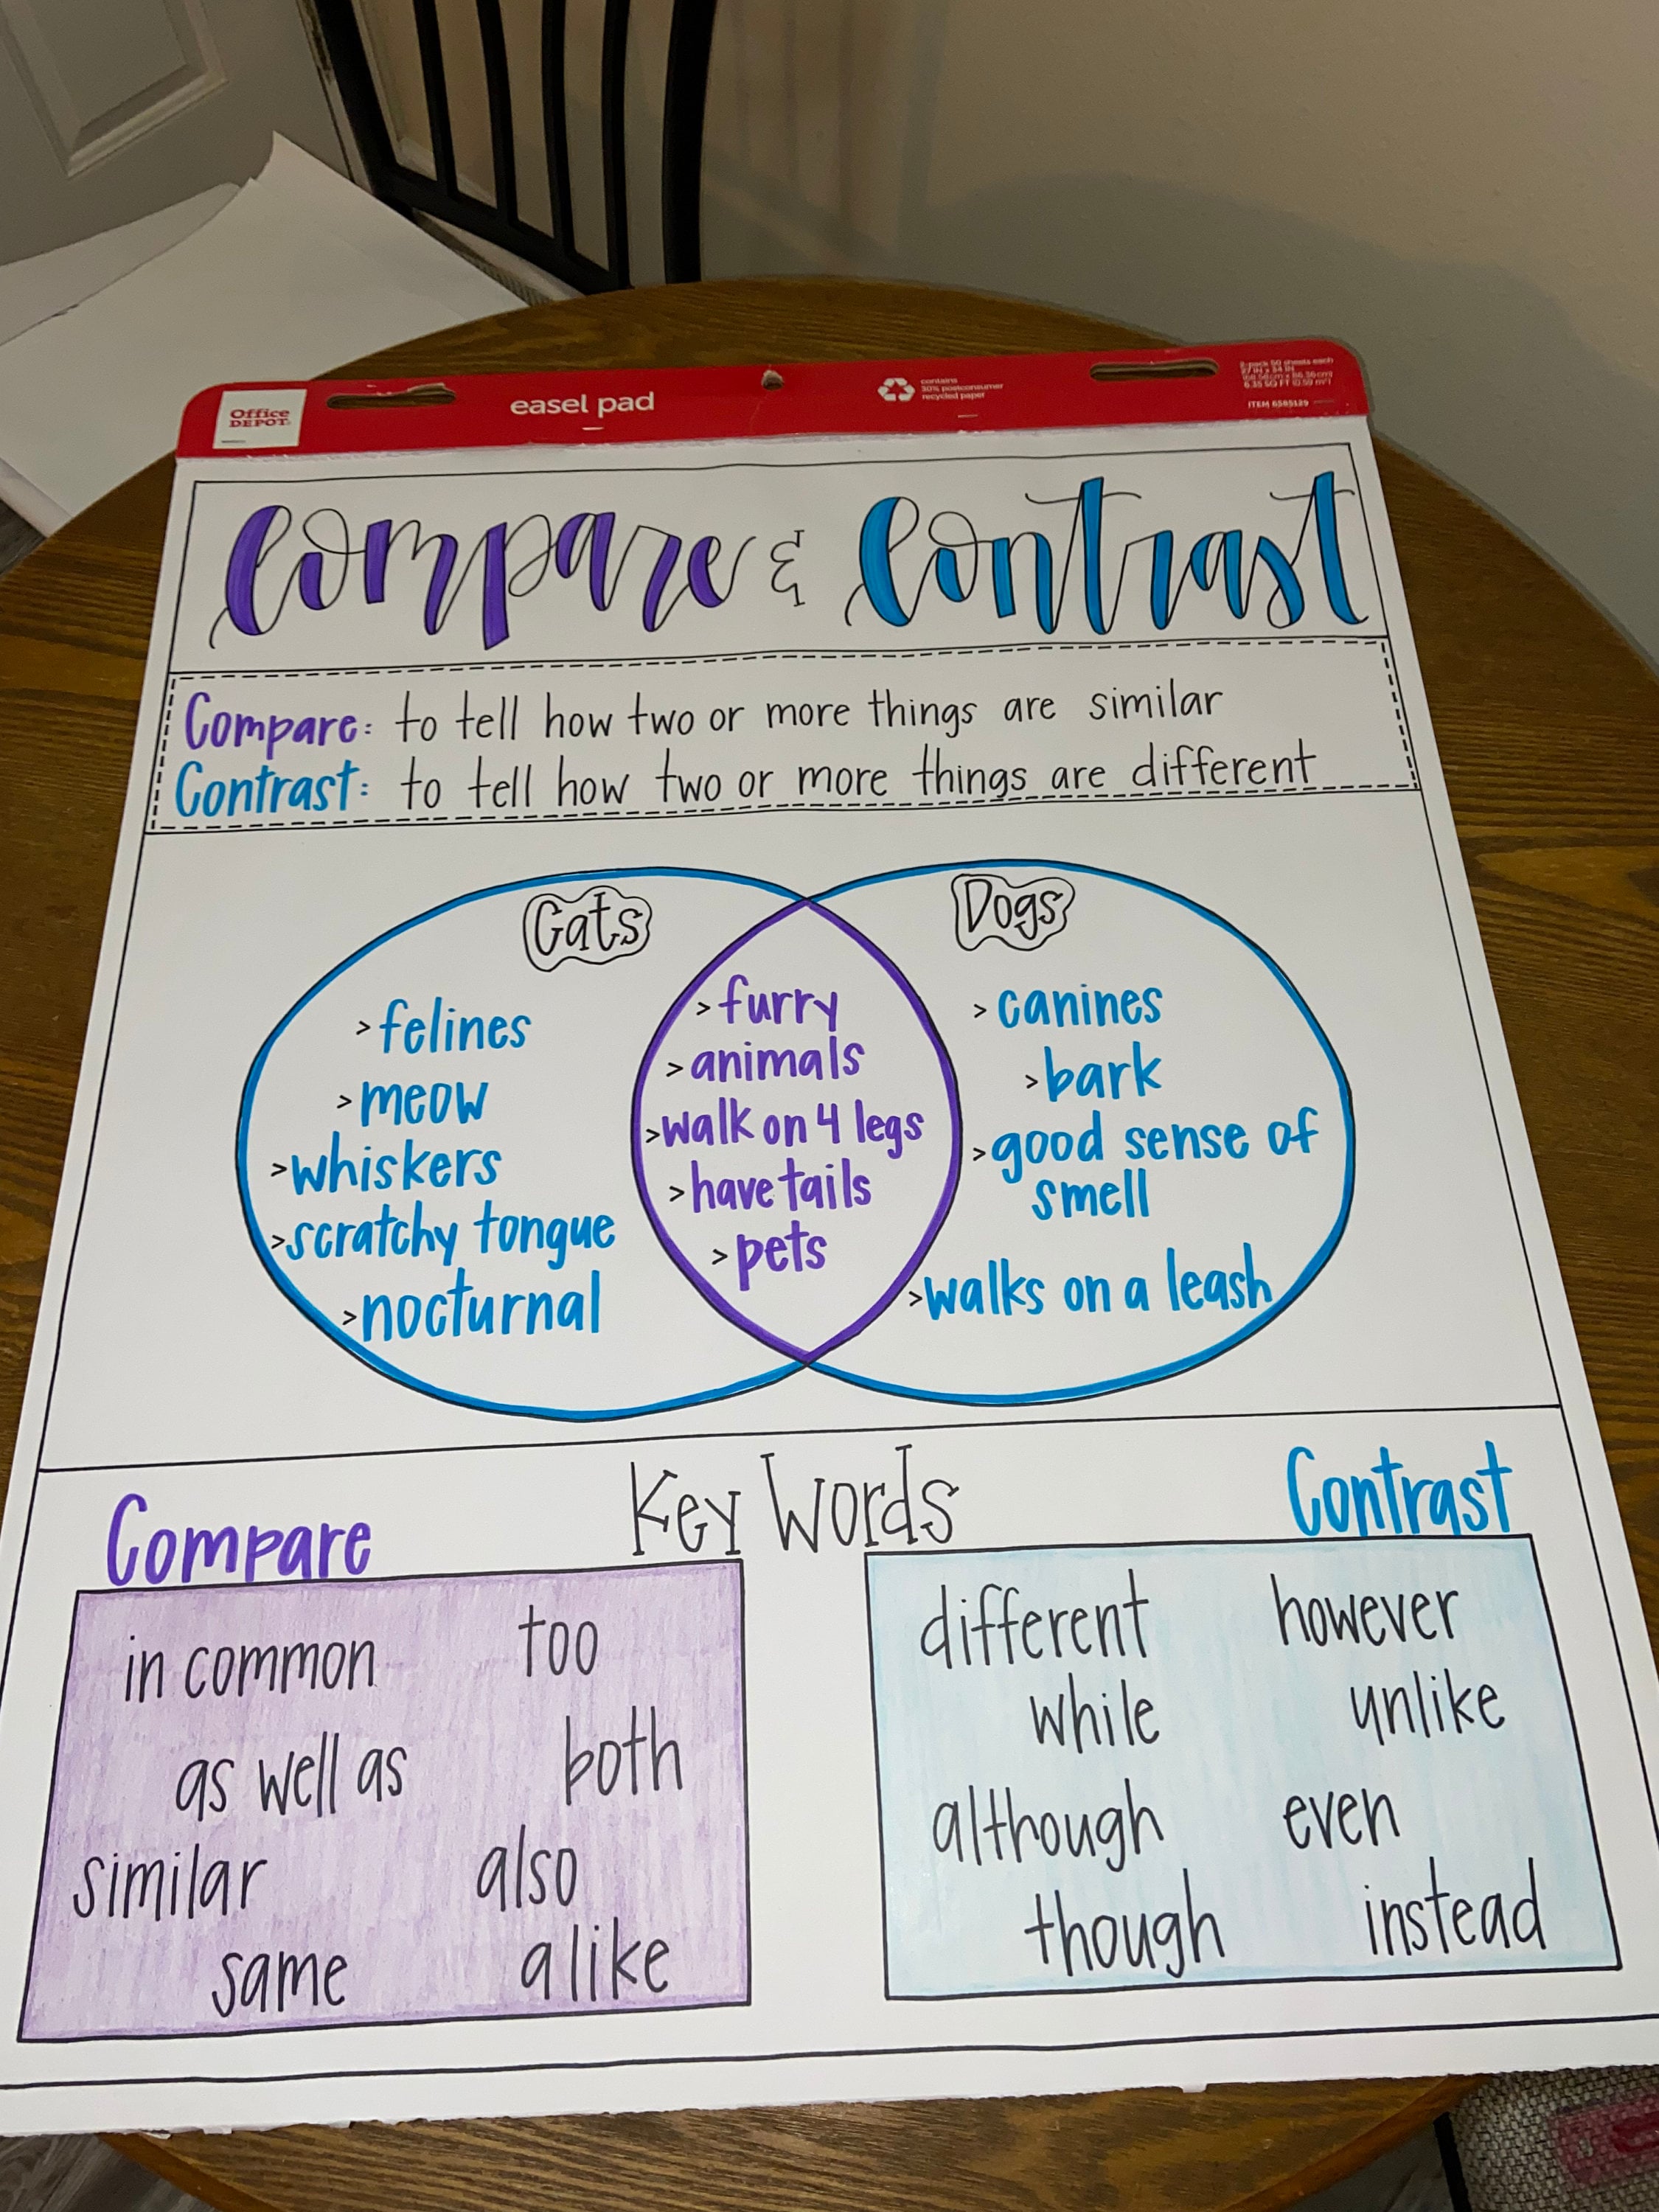 Office
DEPOT
easel pad
contains
30% postconsumer
recycled paper
2-pack 50 sheets each
27 IN x 34 IN
6.35 SQ FT
ITEM 6585129
Compare & Contrast
Compare: to tell how two or more things are similar
Contrast: to tell how two or more things are different
Cats
> felines
> meow
> whiskers
> scratchy tongue
> nocturnal
> furry
> animals
> walk on 4 legs
> have tails
> pets
Dogs
> canines
> bark
> good sense of
smell
> walks on a leash
Key Words
Compare
in common too
as well as both
similar also
same alike
Contrast
different however
while unlike
although even
though instead